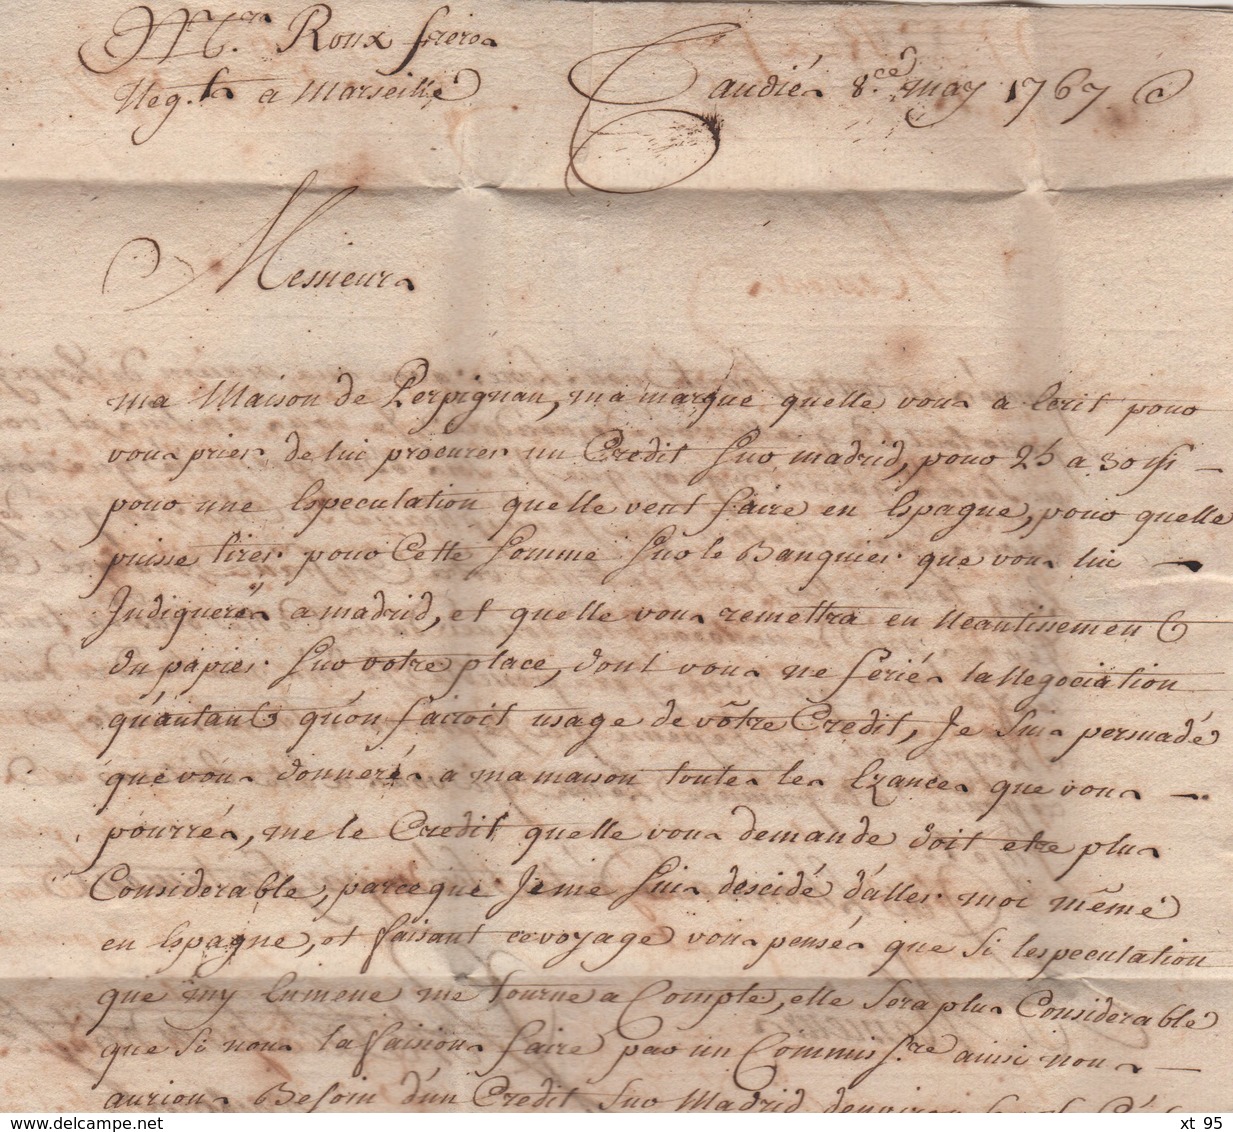 Mrs. Roux freres
Neg.ts a Marseille
Caudiés 8.ce may 1767
Messieurs
ma Maison de Perpignan, ma marque quelle vous a Ecrit pour
vous prier de lui procurer un Credit Sur madrid, pour 25 a 30
pour une Especulation quelle veut faire en Espagne, pour quelle
puisse tirer pour Cette Somme Sur le Banquier que vous lui
Indiquerés a madrid, et quelle vous remettra en Neantissement
du papier Sur votre place, dont vous ne feriés la Negociation
qu'autant qu'on fairoit usage de vôtre Credit, Je Suis persuadé
que vous donnerés a ma maison toutes les Ezances que vous
pourrés, me le Credit quelle vous demande doit etre plus
Considerable, parceque Je me Suis descidé d'aller moi même
en Espagne, et faisant ce voyage vous pensés que Si lespeculation
que my Enmene me tourne a Compte, elle Sera plus Considerable
que Si nous la faisions faire par un Commiss.re ainsi nous
aurions Besoin d'un Credit Sur Madrid denviron
www.delcampe.net
xt_95